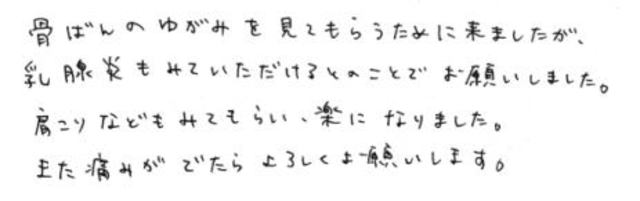 骨ばんのゆがみを見てもらうために来ましたが、
乳腺炎もみていただけるとのことでお願いしました。
肩こりなどもみてもらい、楽になりました。
また痛みがでたらよろしくお願いします。